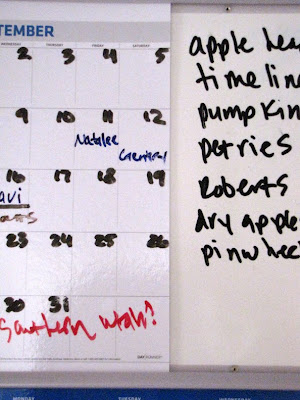 TEMBER
WEDNESDAY THURSDAY FRIDAY SATURDAY
2 3 4 5
9 10 11 12
Natalee
16 17 18 19
avi
23 24 25 26
30 31
Southern Utah?
DAY RUNNER
apple hea
timeline
pumpkin
petries
Roberts
dry apple
pinwheel
MONDAY TUESDAY WEDNESDAY